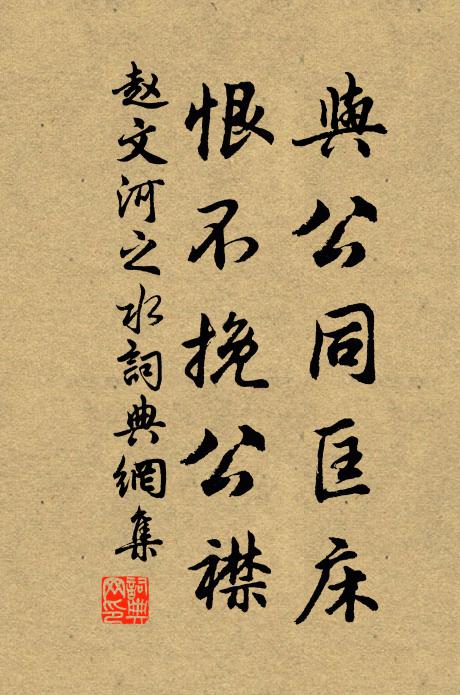 與公同匡床
恨不挽公襟
趙文河之水詞典網集
詞典網印